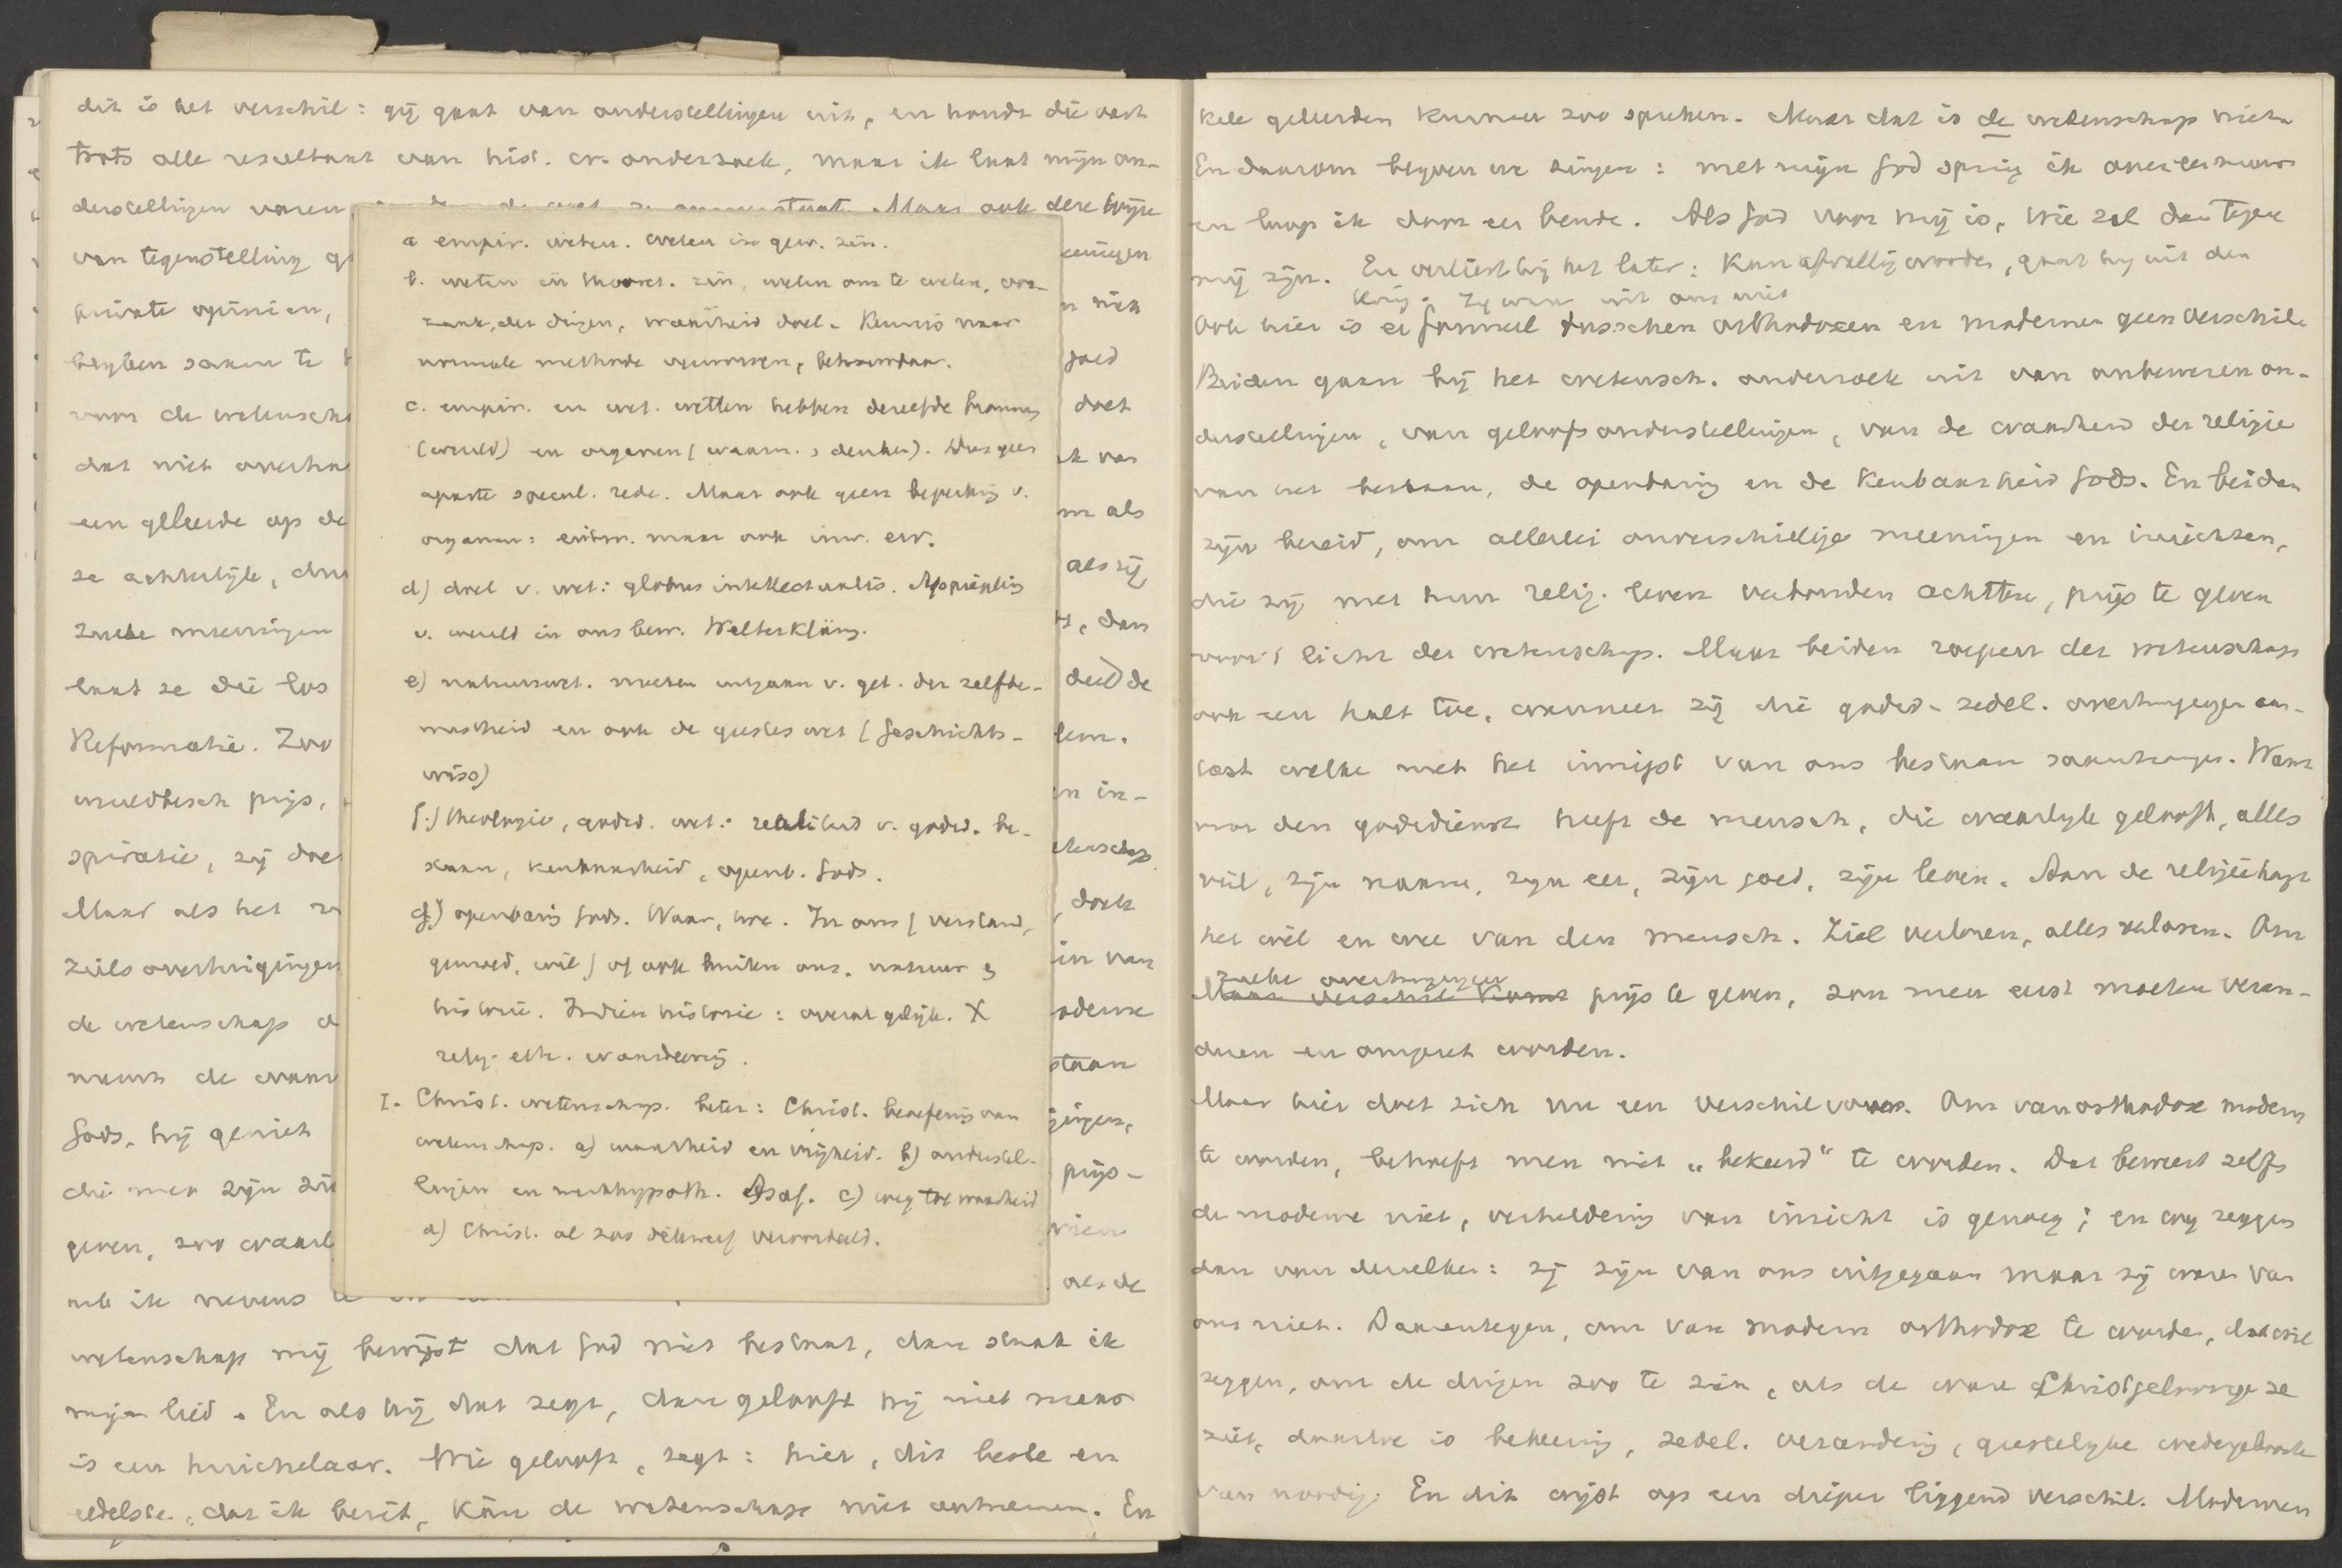 dit is het verschil: gij gaat van onderstellingen uit, en houdt die vast
trots alle resultaat van hist. cr. onderzoek, maar ik laat mijn on-
derstellingen varen Maar ook deze wijze
van tegenstelling
private opinien,
blijven
voor de wetensch
dat niet
een geleerde op de
ze achterlijk,
zulke meeningen
laat ze die los
Reformatie. Zoo
prijs,
spiratie, zij
Maar als het
ziels overtuigingen
de wetenschap
naam de
Gods, hij geniet
die men zijn
geven, zoo
ik nevens
wetenschap mij bewijst dat God niet bestaat, dan staak ik
mijn lied. En als hij dat zegt, dan gelooft hij niet maar
is een huichelaar. Wie gelooft, zegt: hier, dit beste en
edelste, dat ik bezit, kan de wetenschap niet ontnemen. En
a empir. weten. weten in gew. zin.
b. weten in theoret. zin, weten om te weten, oor-
zaak, der dingen, waarheid doel. Kennis naar
normale methode verworven, betrouwbaar.
c. empir. en wet. wetten hebben dezelfde bronnen
(wereld) en organen (waarn., denken). Dus geen
aparte specul. rede. Maar ook geen beperking v.
organen: uitw. maar ook inw. erv.
d) doel v. wet: globus intellectualis. Appropriatie
v. wereld in ons bew. Welterklärg.
e) natuurwet. moeten uitgaan v. get. der zelfbe-
wustheid en ook de geestes wet (Geschichts-
wiss)
f.) theologie, godsd. wet: realiteit v. godsd. be-
staan, kenbaarheid, openb. Gods.
g) openbaring Gods. Waar, hoe. In ons (verstand,
gemoed, wil) of ook buiten ons. natuur &
historie. Indien historie: overal gelijk. X
relig. eth. waardeering.
I. Christ. wetenschap. beter: Christ. beoefening van
wetenschap. a) waarheid en vrijheid. b) onderstel-
lingen en werkhypoth. Asaf. c) weg tot waarheid
d) Christ. al zoo dikwerf veroordeeld.
niet
goed
doet
als
als zij
, dan
de
in-
etenschap
, doch
in van
oderne
staan
prijs-
als de
kele geleerden kunnen zoo spreken. Maar dat is de wetenschap niet.
En daarom blijven we zingen: met mijn God spring ik over een muur
en loop ik door een bende. Als God voor mij is, wie zal dan tegen
mij zijn. En verliest hij het later: kan afvallig worden, gaat hij uit den
krijg. Zij waren uit ons niet
Ook hier is er formeel tusschen orthodoxen en modernen geen verschil.
Beiden gaan bij het wetensch. onderzoek uit van onbewezen on-
derstellingen, van geloofsonderstellingen, van de waarheid der religie
van het bestaan, de openbaring en de kenbaarheid Gods. En beiden
zijn bereid, om allerlei onverschillige meeningen en inzichten,
die zij met hun relig. leven verbonden achtten, prijs te geven
voor 't licht der wetenschap. Maar beiden roepen der wetenschap
ook een halt toe, wanneer zij die godsd.-zedel. overtuigingen aan-
tast welke met het innigst van ons bestaan samenhangen. Want
voor den godsdienst heeft de mensch, die waarlijk gelooft, alles
veil, zijn naam, zijn eer, zijn goed, zijn leven. Aan de religie hangt
het wel en wee van den mensch. Ziel verloren, alles verloren. Om
zulke overtuigingen
Maar verschil komt prijs te geven, zou men eerst moeten veran-
deren en omgezet worden.
Maar hier doet zich nu een verschil voor. Om van orthodox modern
te worden, behoeft men niet „bekeerd" te worden. Dat beweert zelfs
de moderne niet, verheldering van inzicht is genoeg; en wij zeggen
dan van dezulken: zij zijn van ons uitgegaan maar zij waren van
ons niet. Daarentegen, om van modern orthodox te worden, dat wil
zeggen, om de dingen zoo te zien, als de ware Christgeloovige ze
ziet, daartoe is bekeering, zedel. verandering, geestelijke wedergeboorte
van noodig. En dit wijst op een dieper liggend verschil. Modernen